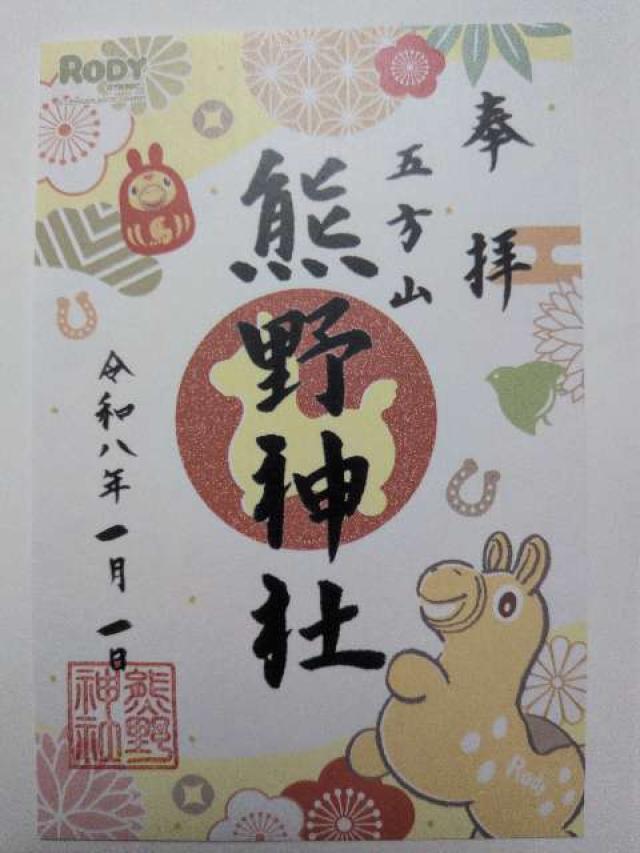 奉拝
五方山
熊野神社
令和八年一月一日
熊野
神社
RODY
馬
Rody